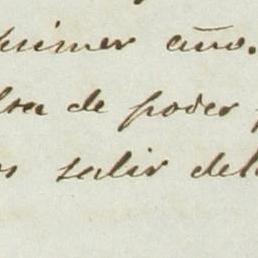 primer año.
de poder
salir del